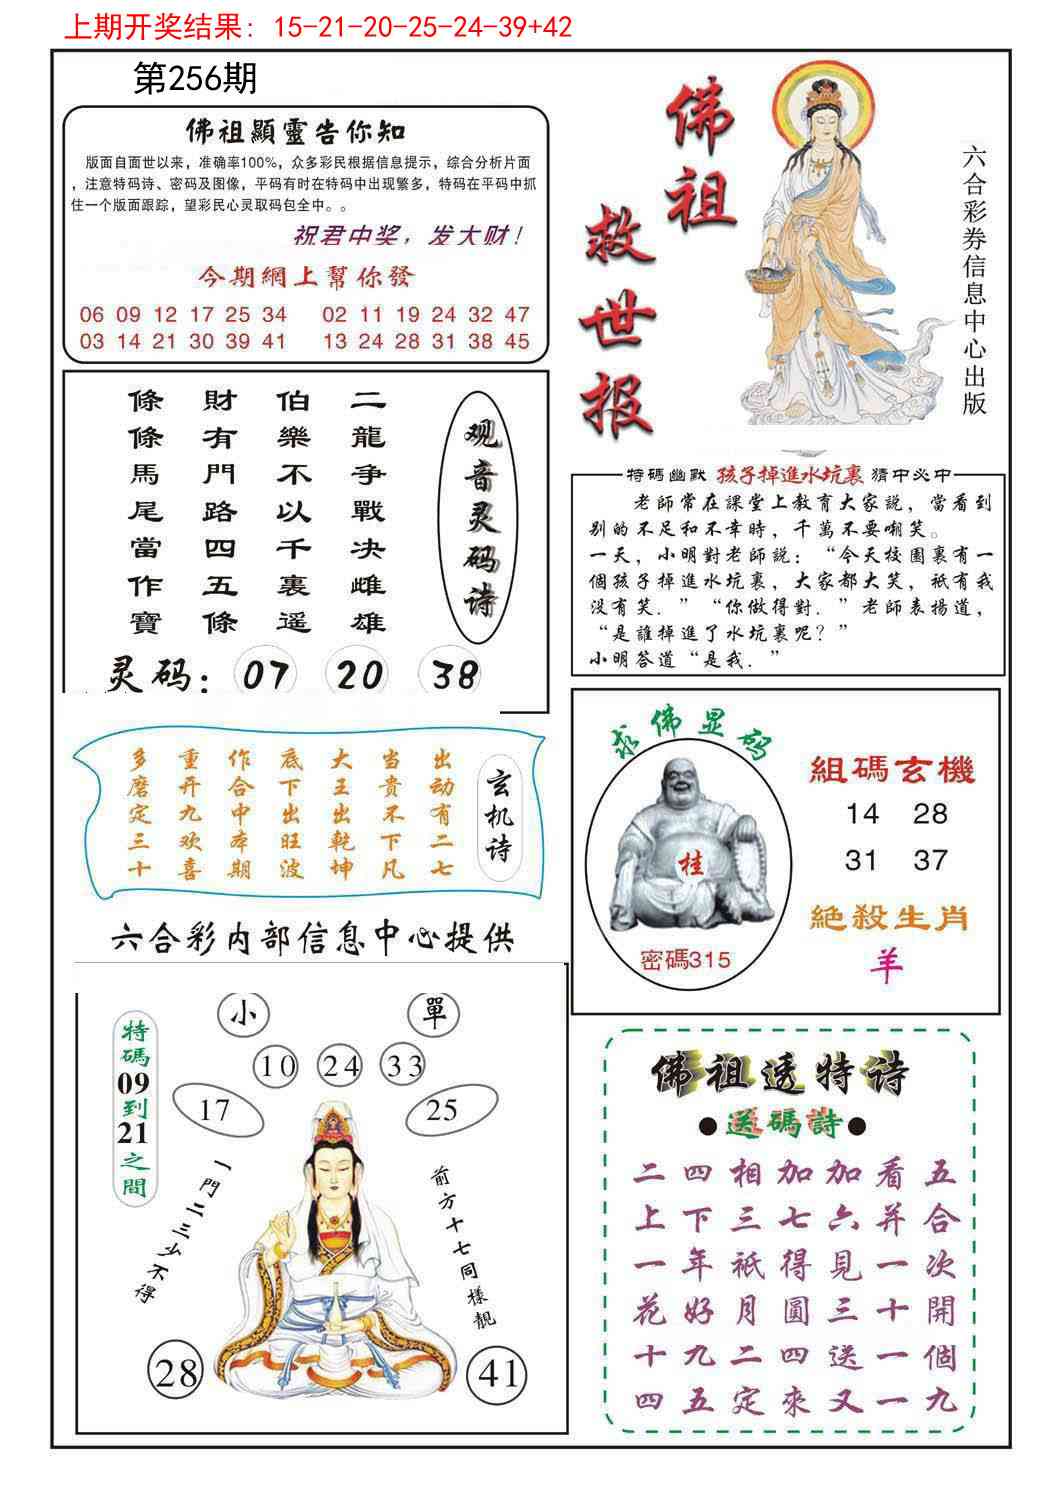 上期开奖结果: 15-21-20-25-24-39+42
第256期
佛祖顯靈告你知
版面自面世以来，准确率100%，众多彩民根据信息提示，综合分析片面
，注意特码诗、密码及图像，平码有时在特码中出现繁多，特码在平码中抓
住一个版面跟踪，望彩民心灵取码包全中。。
祝君中奖，发大财！
今期網上幫你發
06 09 12 17 25 34 02 11 19 24 32 47
03 14 21 30 39 41 13 24 28 31 38 45
佛祖
救世报
六合彩券信息中心出版
二龍争戰决雌雄
伯樂不以千裏遥
財有門路四五條
條條馬尾當作寶
观音灵码诗
灵码：07 20 38
特碼幽默 孩子掉進水坑裏 猜中必中
老師常在課堂上教育大家説，當看到
别的不足和不幸時，千萬不要嘲笑。
一天，小明對老師説：“今天校園裏有一
個孩子掉進水坑裏，大家都大笑，衹有我
没有笑．”“你做得對．”老師表揚道，
“是誰掉進了水坑裏呢？”
小明答道“是我．”
玄机诗
出动有二七
当贵不下凡
大王出乾坤
底下出旺波
作合中本期
重开九欢喜
多磨定三十
求佛显码
桂
密碼315
組碼玄機
14 28
31 37
絕殺生肖
羊
六合彩内部信息中心提供
小 單
10 24 33
17 25
特碼09到21之間
一門二三少不得
前方十七同樣靚
28 41
佛祖透特诗
●送碼詩●
二四相加加看五
上下三七六并合
一年衹得見一次
花好月圓三十開
十九二四送一個
四五定來又一九